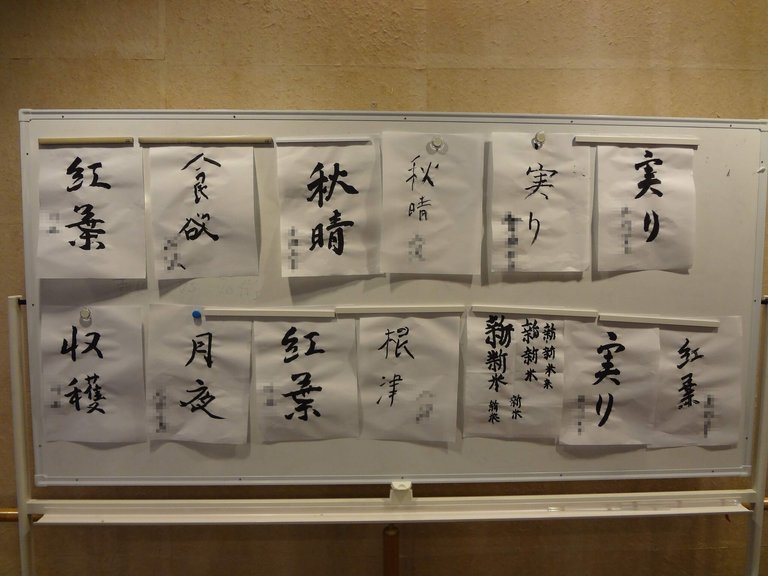 紅葉
食欲
秋晴
秋晴
実り
実り
収穫
月夜
紅葉
根津
新新米
新新米
新新米米
新米
新米
実り
紅葉